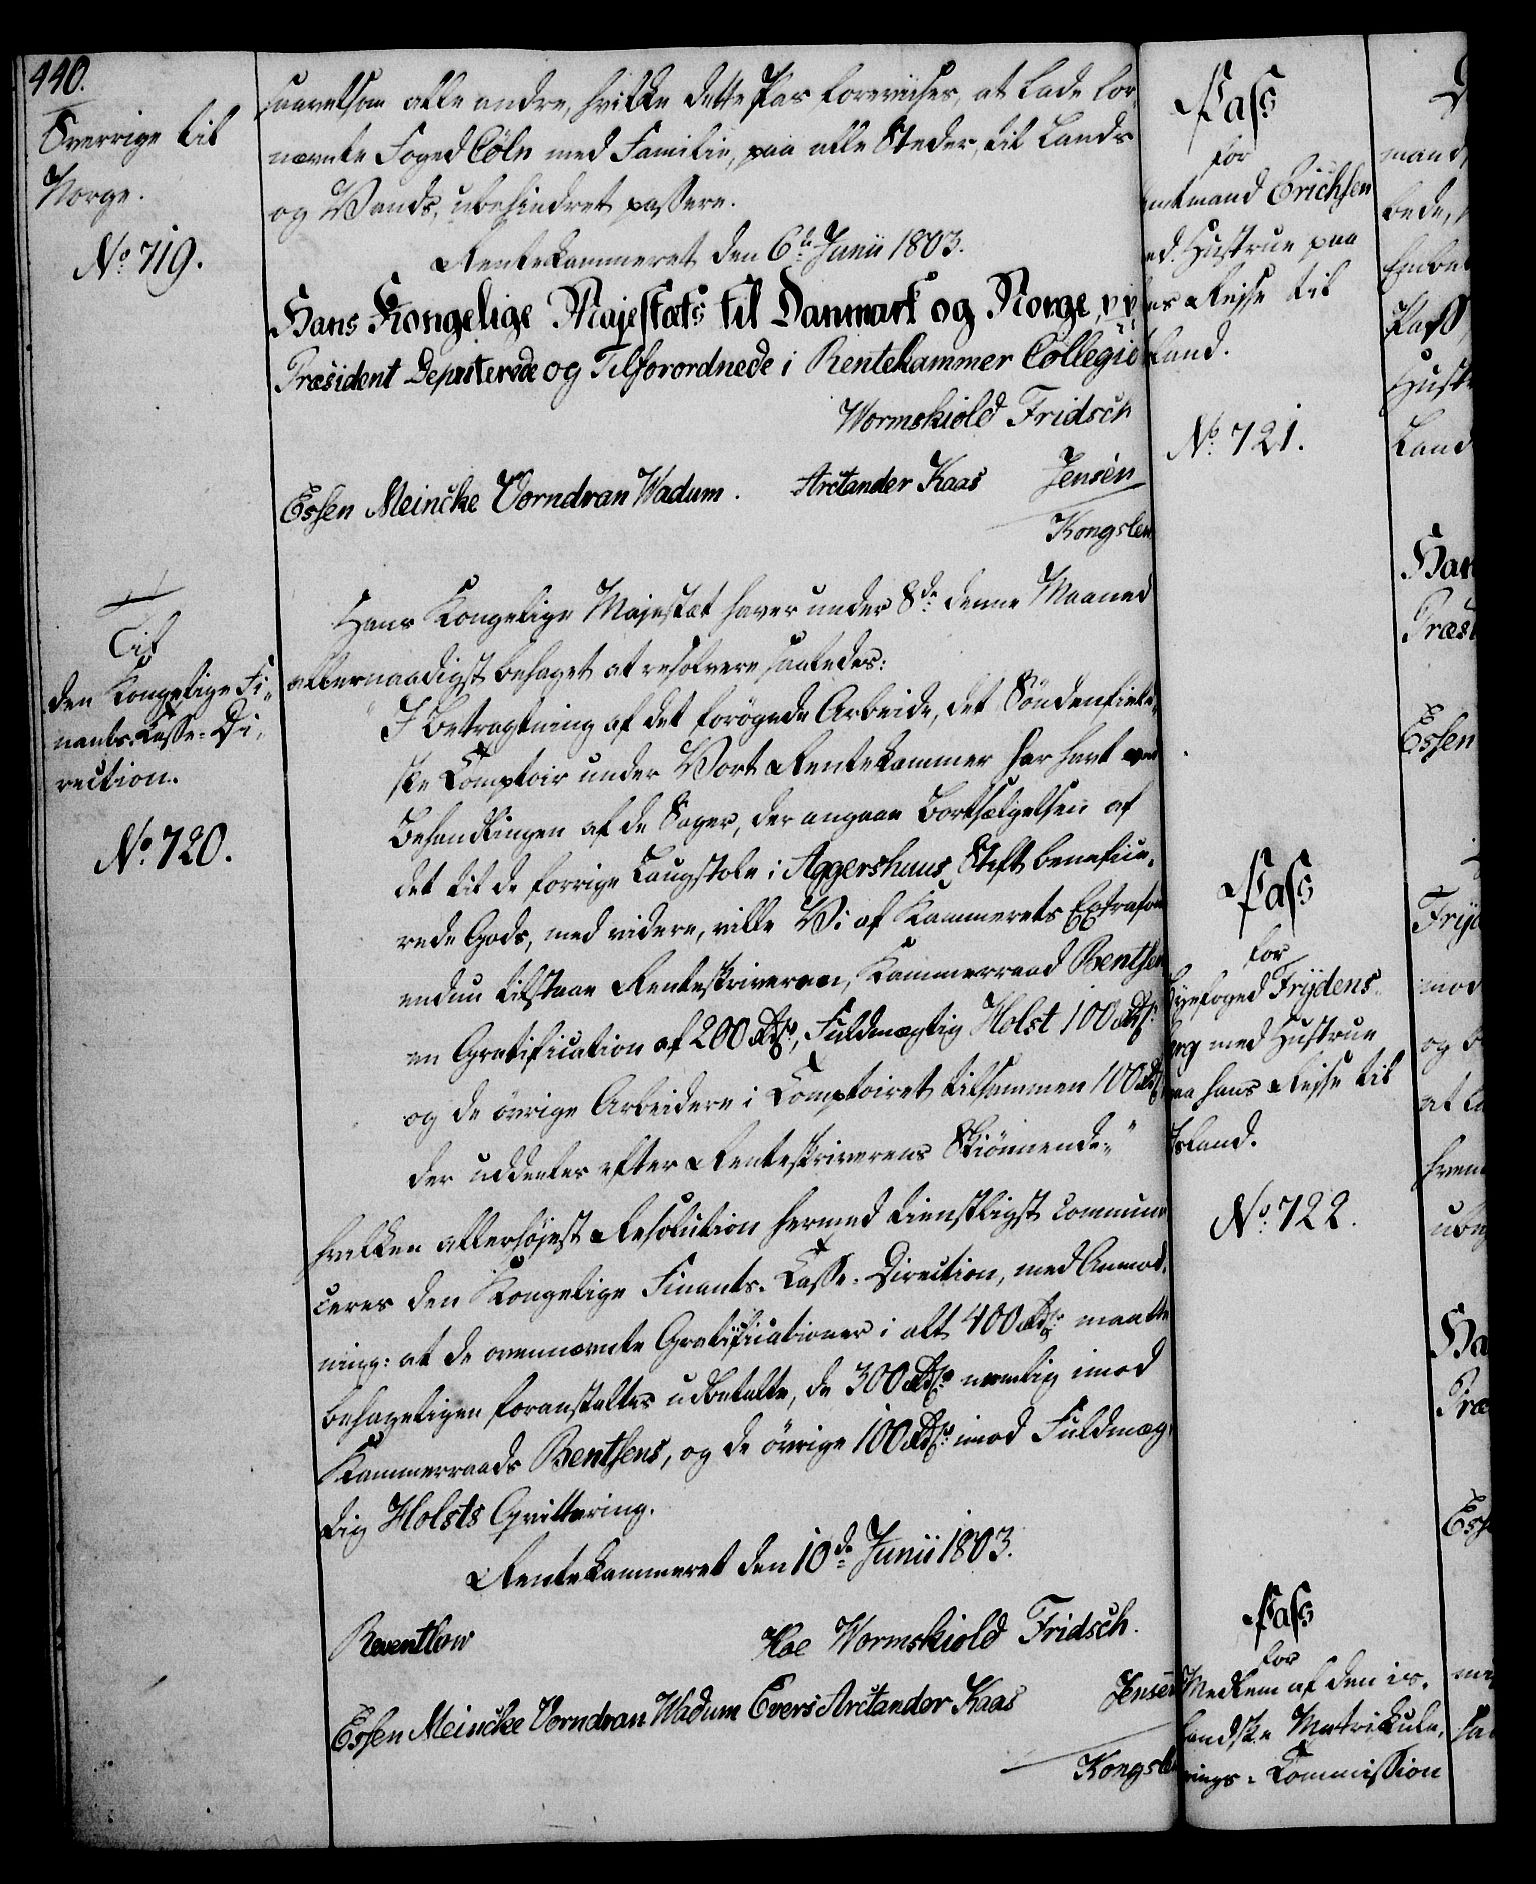 440.
Sverrige til
Norge.
No. 719.
saavelsom alle andre, hvilke dette Pas forevises, at lade for-
nævnte Foged Cöln med Familie, paa alle Steder, til Lands
og Vands, ubehindret passere.
Rentekammeret den 6te Junii 1803.
Hans Kongelige Majestæts til Danmark og Norge, pp
Præsident Deputerede og Tilforordnede i Rentekammer Collegio
Wormskiold Fridsch
Essen Meincke Vorndran Wadum. Arctander Kaas Jensen
Kongslew
Til
den Kongelige Fi-
nants-Casse-Di-
rection.
No. 720.
Hans Kongelige Majestæt haver under 8de denne Maaned
allernaadigst behaget at resolvere saaledes:
I Betragtning af det forøgede Arbeide, det Söndenfield-
ske Comptoir under Vort Rentekammer har havt ved
Behandlingen af de Sager, der angaae Bortsælgelsen af
det til de forrige Laugstole i Aggershuus Stift benefice-
rede Gods, med videre, ville Vi af Kammerets Extrafond
endnu tilstaae Renteskriveren, Kammerraad Benthsen
en Gratification af 200 Rdlr, Fuldmægtig Holst 100 Rdlr
og de övrige Arbeidere i Comptoiret tilsammen 100 Rdlr
der uddeeles efter Renteskriverens Skiönnende."
hvilken allerhöjest Resolution hermed tienstligst communi-
ceres den Kongelige Finants-Casse-Direction, med Anmod-
ning: at de ovennævnte Gratificationer i alt 400 Rdlr maatte
behageligen foranstaltes udbetalte, de 300 Rdlr nemlig imod
Kammerraads Benthsens, og de övrige 100 Rdlr imod Fuldmæg-
tig Holsts Qvittering.
Rentekammeret den 10de Junii 1803.
Reventlow Hoe Wormskiold Fridsch.
Essen Meincke Vorndran Wadum Evers Arctander Kaas Jensen
Kongslew
Pass
for
Amtmand Erichsen
med Hustrue paa
hans Rejse til
Island.
No. 721.
Pass
for
Byefoged Frydens-
berg med Hustrue
paa hans Rejse til
Island.
No. 722.
Pass
for
Medlem af den is-
landske Matrikule-
rings-Commission
mand
bede,
Pass
Hust
Land
Han
Præs
Essen
Fryd
mod
og
at
ube
Ha
Præ
Ess